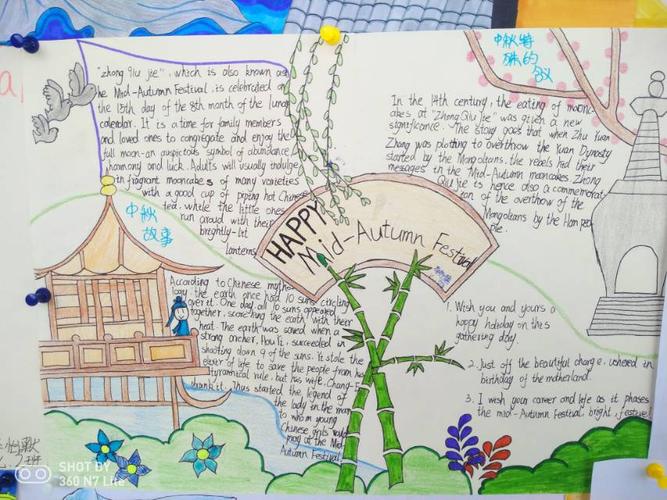 "zhong qiu jie", which is also known as
he Mid-Autumn Festival, is celebrated on
the 15th day of the 8th month of the lunar
calendar. It is a time for family members
and loved ones to congregate and enjoy the
full moon-an auspicious symbol of abundance,
harmony and luck. Adults will usually indulge
in fragrant mooncakes of many varieties
with a good cup of piping hot Chinese
tea, while the little ones
run aroud with their
breghtly-lit
lanterns.
中秋
故事
According to Chinese mytho
logy, the earth once had 10 suns circling
over it. One day, all 10 suns appeared
together, scorching the earth with their
heat. The earth was saved when a
strong archer, Hou Yi, succeeded in
shooting down 9 of the suns. Yi stole the
elixir of life to save the people from his
tyrannical rule, but his wife, Chang-E
drank it. Thus started the legend of
the lady in the moon
to whom young
Chinese girls would
pray at the Mid-
Autumn Festival.
HAPPY
Mid-Autumn Festival
中秋特
殊的
In the 14th century, the eating of moon-
cakes at "Zhong Qiu Jie" was given a new
significance. The story goes that when Zhu Yuan
Zhang was plotting to overthrow the Yuan Dynasty
started by the Mongolians, the rebels hid their
messages in the Mid-Autumn mooncakes. Zhong
Qiu Jie is hence also a commemorat-
ion of the overthow of the
Mongolians by the Han peo
ple.
1. Wish you and yours a
happy holiday on this
gathering day.
2. Just off the beautiful change, ushered in
birthday of the motherland.
3. I wish your career and life as it phases
the mid-Autumn Festival, bright, festival
SHOT BY
360 N7 Lite